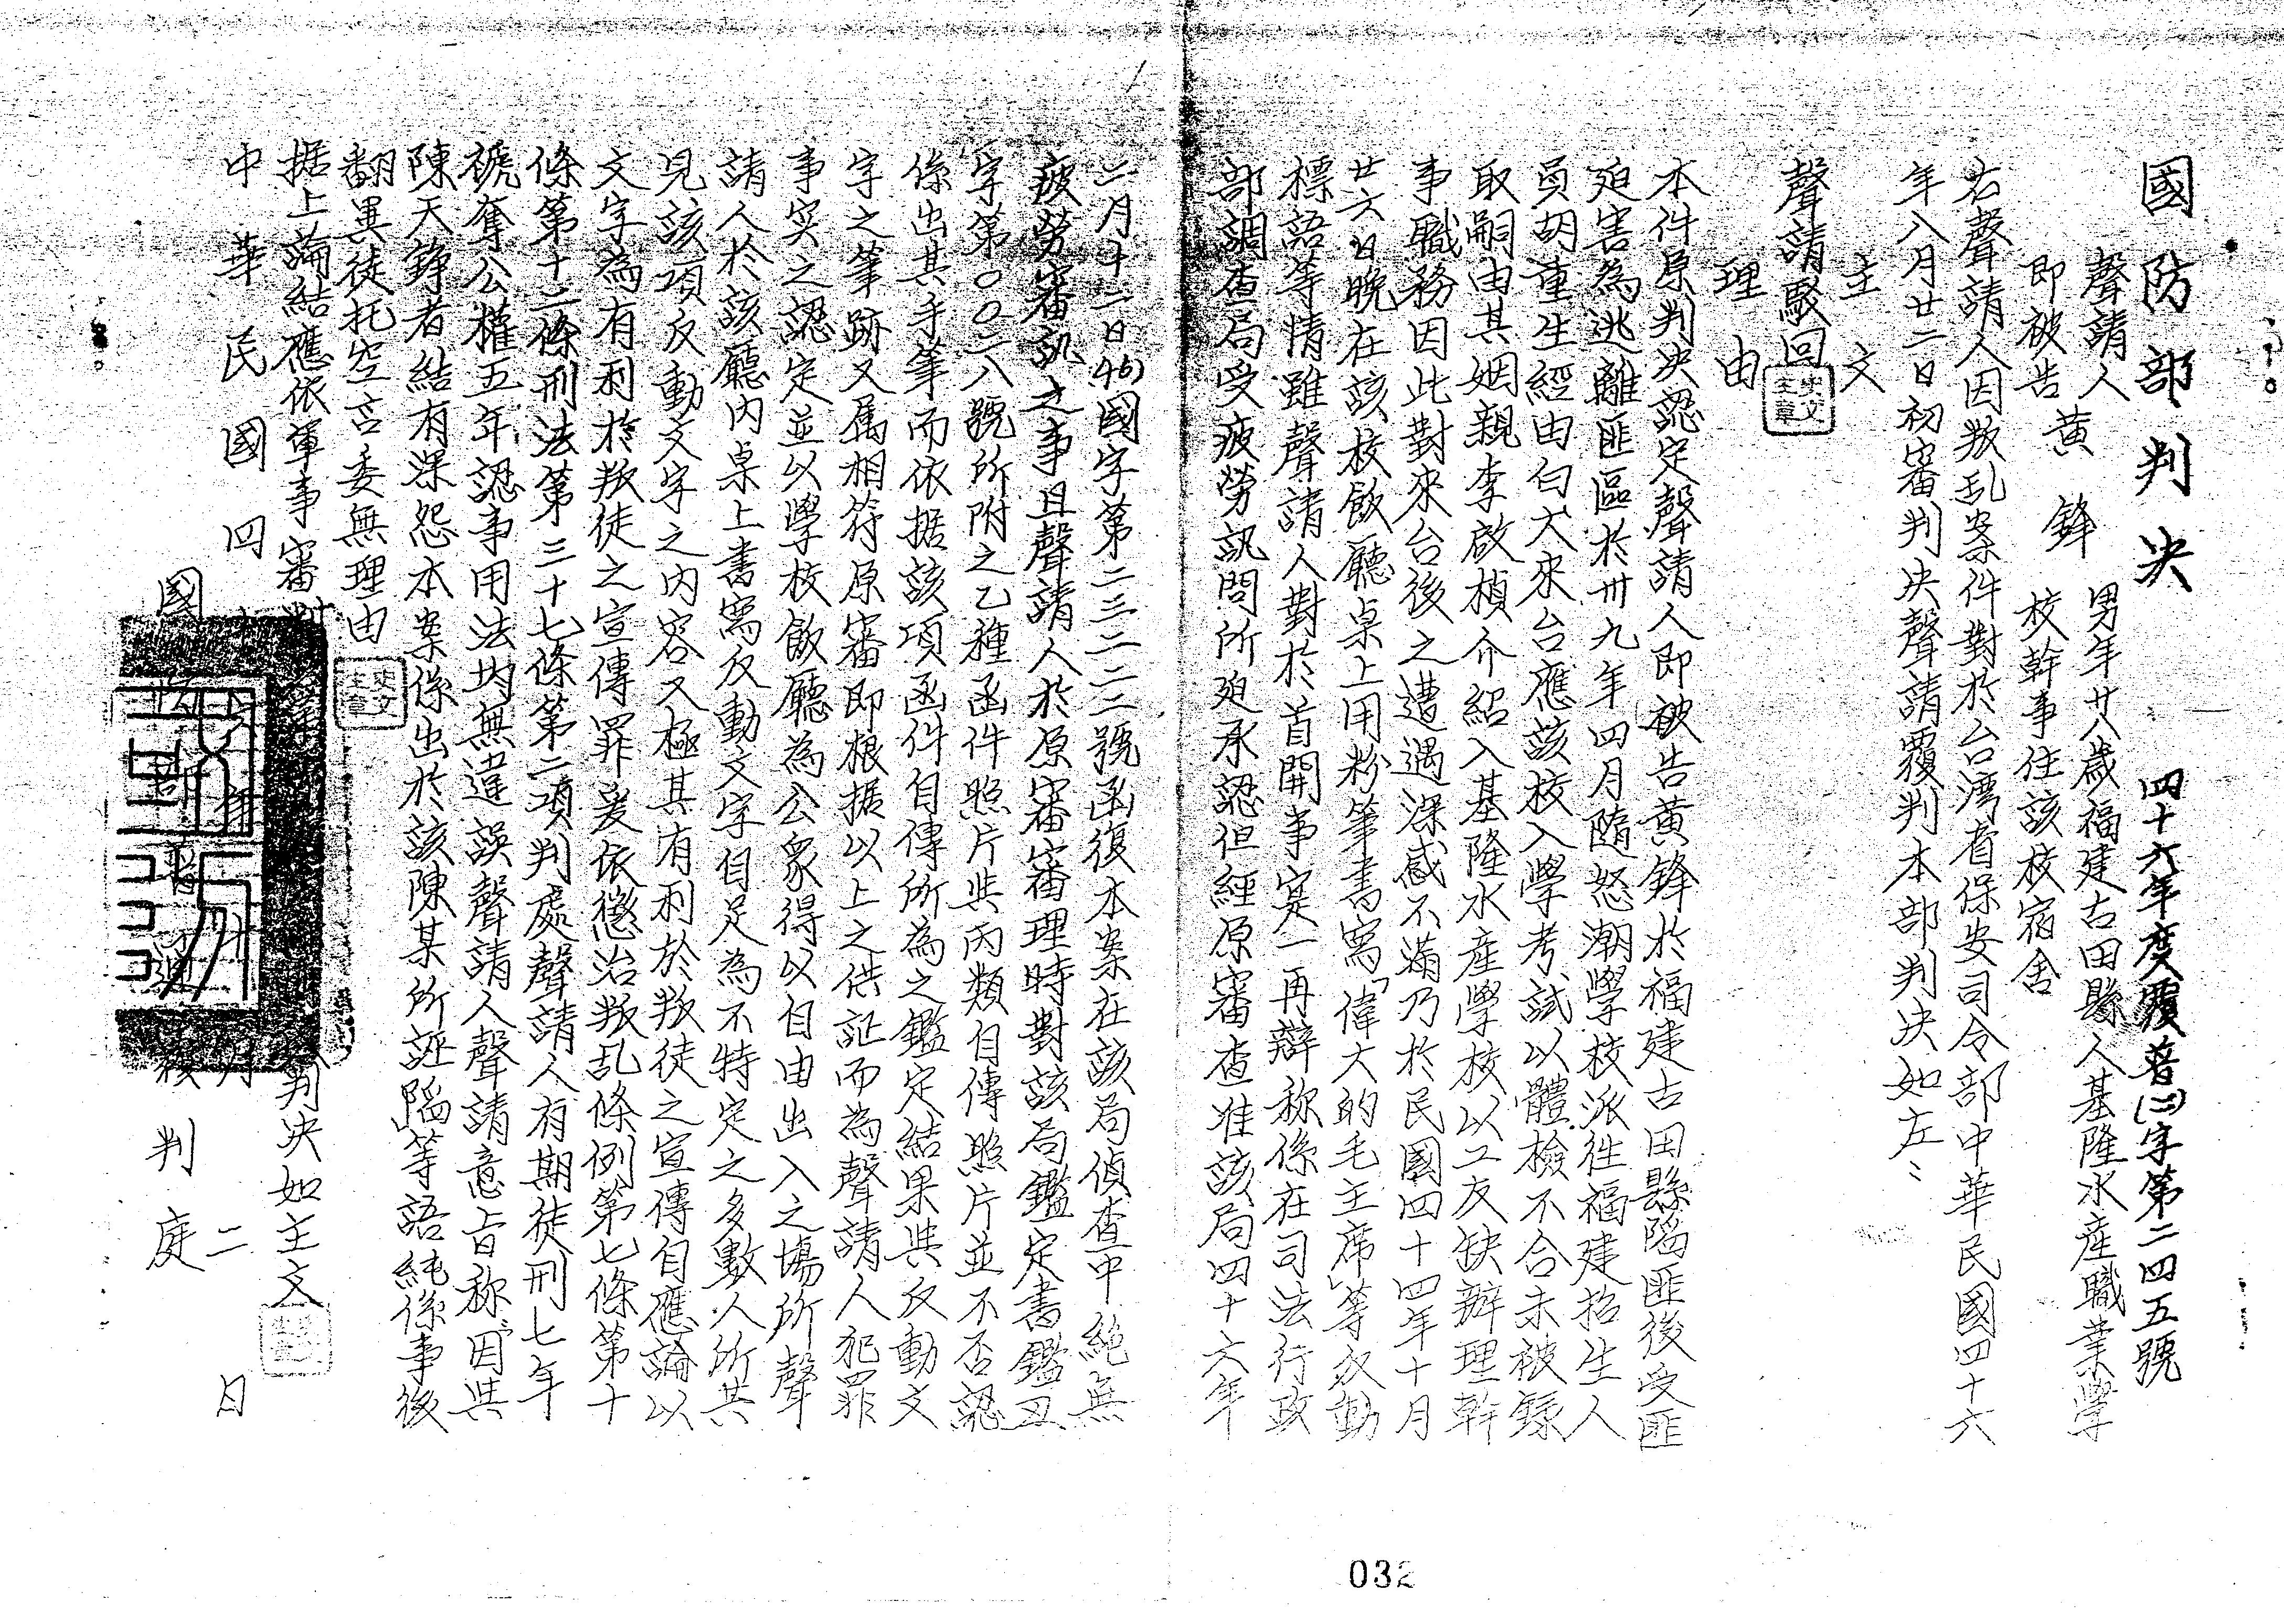 國防部判決
四十六年度覆普(二)字第二四五號
聲請人
即被告 黃鋒 男年廿八歲福建古田縣人基隆水產職業學
校幹事住該校宿舍
右聲請人因叛乱案件對於台灣省保安司令部中華民國四十六
年八月廿二日初審判決聲請覆判本部判決如左:
主文
聲請駁回
理由
本件原判決認定聲請人即被告黃鋒於福建古田縣陷匪後受匪
迫害為逃離匪區於卅九年四月隨怒潮學校派往福建招生人
員胡重生經由白犬來台應該校入學考試以體檢不合未被錄
取嗣由其姻親李啟楨介紹入基隆水產學校以工友缺辦理幹
事職務因此對來台後之遭遇深感不滿乃於民國四十四年十月
廿六日晚在該校飯廳桌上用粉筆書寫「偉大的毛主席」等反動
標語等情雖聲請人對於首開事實一再辯称係在司法行政
部調查局受疲勞訊問所迫承認但經原審查准該局四十六年
二月十二日(46)國字第二三二二二號函復本案在該局偵查中絕無
疲勞審訊之事且聲請人於原審審理時對該局鑑定書鑑丑
字第〇〇二八號所附之乙種函件照片與丙類自傳照片並不否認
係出其手筆而依据該項函件自傳所為之鑑定結果與反動文
字之筆跡又属相符原審即根据以上之供証而為聲請人犯罪
事实之認定並以學校飯廳為公眾得以自由出入之場所聲
請人於該廳內桌上書寫反動文字自足為不特定之多數人所共
見該項反動文字之內容又極其有利於叛徒之宣傳自應論以
文字為有利於叛徒之宣傳罪爰依懲治叛乱條例第七條第十
條第十二條刑法第三十七條第二項判處聲請人有期徒刑七年
褫奪公權五年認事用法均無違誤聲請人聲請意旨称「因與
陳天錚者結有深怨本案係出於該陳某所誣陷」等語純係事後
翻異徒托空言委無理由
据上論結應依軍事審判 判決如主文
中華民國四 月二日
國 判庭
032